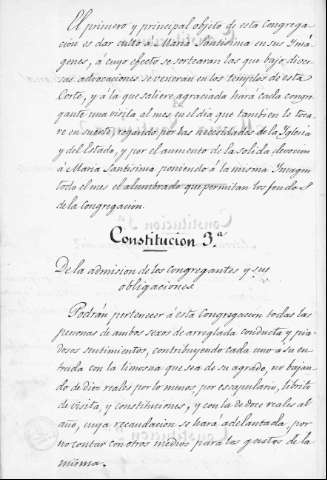 El primero y principal objeto de esta congrega-
cion es dar culto á Maria Santisima en sus Imá-
genes, á cuyo efecto se sortearán las que bajo diver-
sas advocaciones se veneran en los templos de esta
Corte, y á la que saliere agraciada hará cada congre-
gante una visita al mes en el dia que tambien le toca-
re en suerte, rogando por las necesidades de la Iglesia
y del Estado, y por el aumento de la sólida devocion
á Maria Santisima poniendo á la misma Imagen
todo el mes el alumbrado que permitan los fondos
de la congregacion.
Constitucion 3.ª
De la admision de los congregantes y sus
obligaciones
Podrán pertenecer á esta congregacion todas las
personas de ambos sexos de arreglada conducta y pia-
dosos sentimientos, contribuyendo cada uno á su en-
trada con la limosna que sea de su agrado, no bajan-
do de diez reales por lo menos, por escapulario, librito
de visita, y constituciones, y con la de doce reales al
año, cuya recaudacion se hará adelantada, por
no contar con otros medios para los gastos de la
misma.